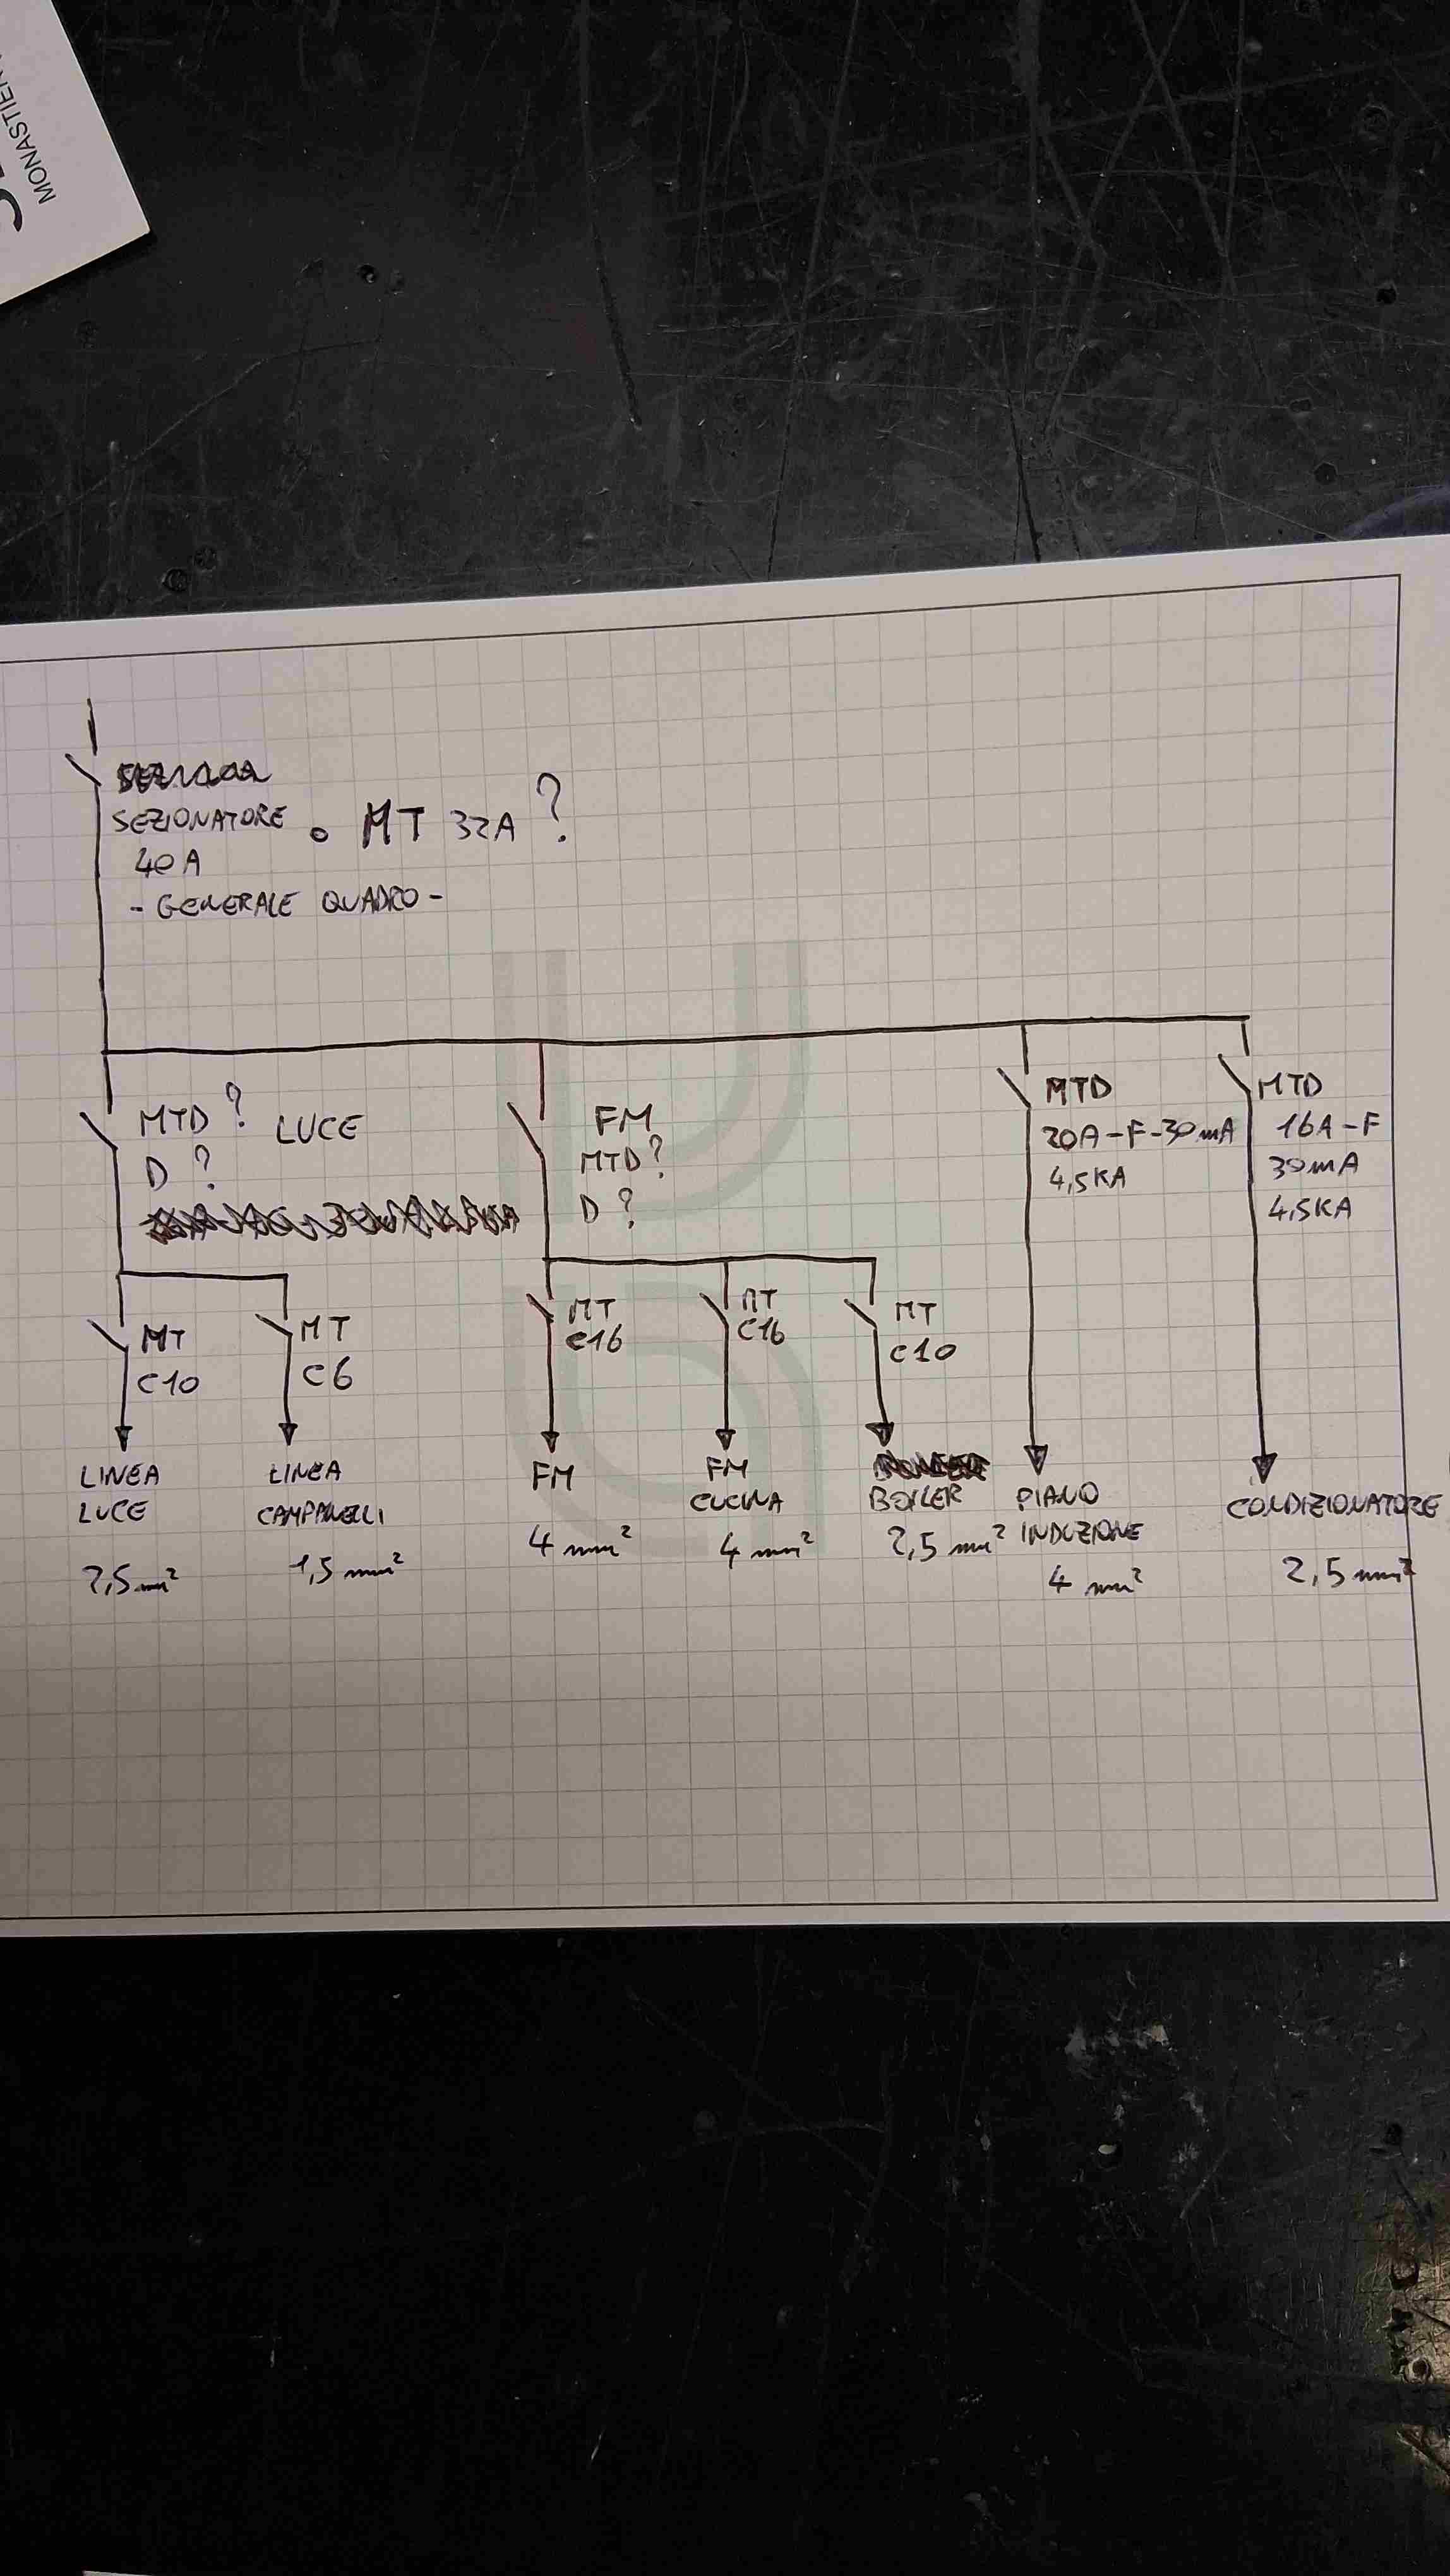 MONASTIER
SEZIONATORE o MT 32A ?
40A
- GENERALE QUADRO -
MTD ? LUCE
D ?
FM
MTD ?
D ?
MTD
20A-F-30mA
4,5KA
MTD
16A-F
30mA
4,5KA
MT
C10
MT
C6
MT
C16
MT
C16
MT
C10
LINEA
LUCE
2,5 mm²
LINEA
CAMPANELLI
1,5 mm²
FM
4 mm²
FM
CUCINA
4 mm²
BOILER
2,5 mm²
PIANO
INDUZIONE
4 mm²
CONDIZIONATORE
2,5 mm²